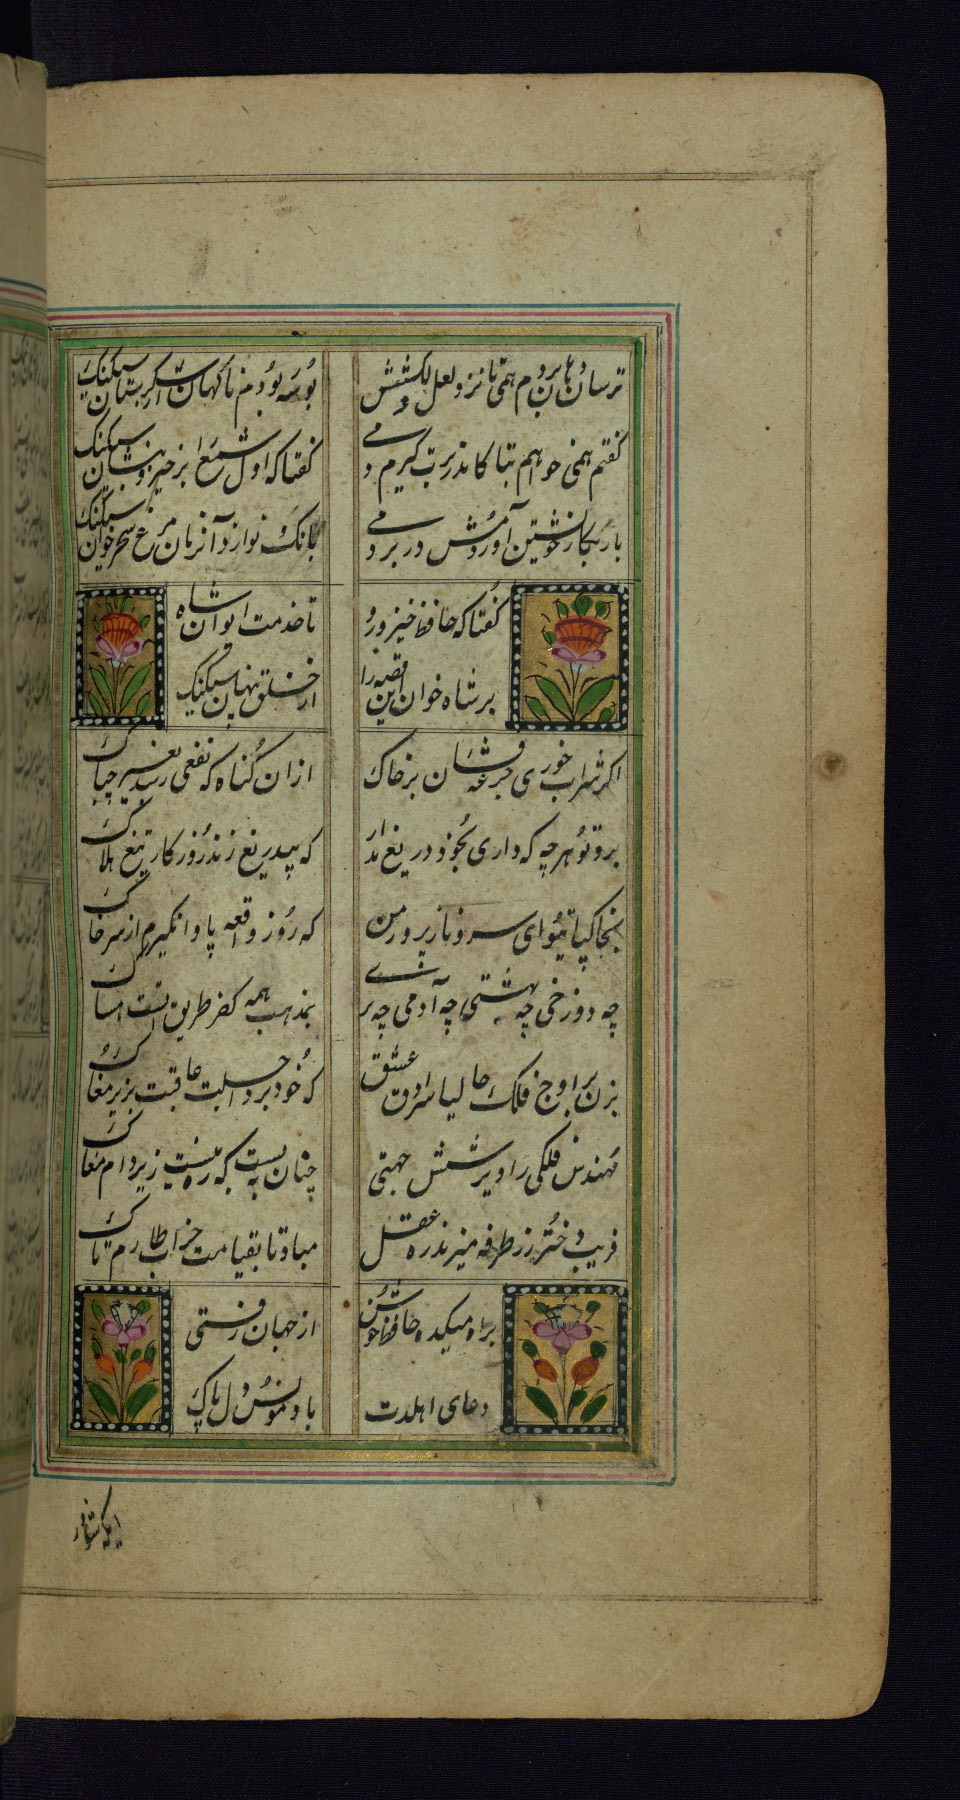 ترسان و هان بردم همی تا نزد لعل دلکشش
بوسه بودم ناگهان از شکرستان سبکنک
گفتم همی خواهم بتا کاندر برت گیرم دمی
گفتا که اول شمع را برخیز و بنشان سبکنک
باز بخویشتن آوردمش در بر دمی
بانگ نواز آن زمان مرغ سحر خوان سبکنک
گفتا که حافظ خیز و رو
تا خدمت ایوان شاه
بر شاه خوان این قصه را
از خلق پنهان سبکنک
اگر شراب خوری جرعه فشان بر خاک
از ان گناه که نفعی رسد بغیر چه باک
برو تو هر چه که داری بخور دریغ مدار
که بیدریغ زند روزگار تیغ هلاک
بخاک پای تو ای سرو ناز پرور من
که روز واقعه پا وانگیرم از سر خاک
چه دوزخی چه بهشتی چه آدمی چه پری
بمذهب همه کفر طریقت است امساک
بزن بر اوج فلک حالیا سرادق عشق
که خود برد اجلت عاقبت بزیر مغاک
مهندس فلکی راه دیر شش جهتی
چنان ببست که ره نیست زیر دام مغاک
فریب دختر رز طرفه میزند ره عقل
مباد تا بقیامت خراب طارم تاک
براه میکده حافظ خوش
از جهان رفتی
دعای اهلدلت
باد مونس دل پاک